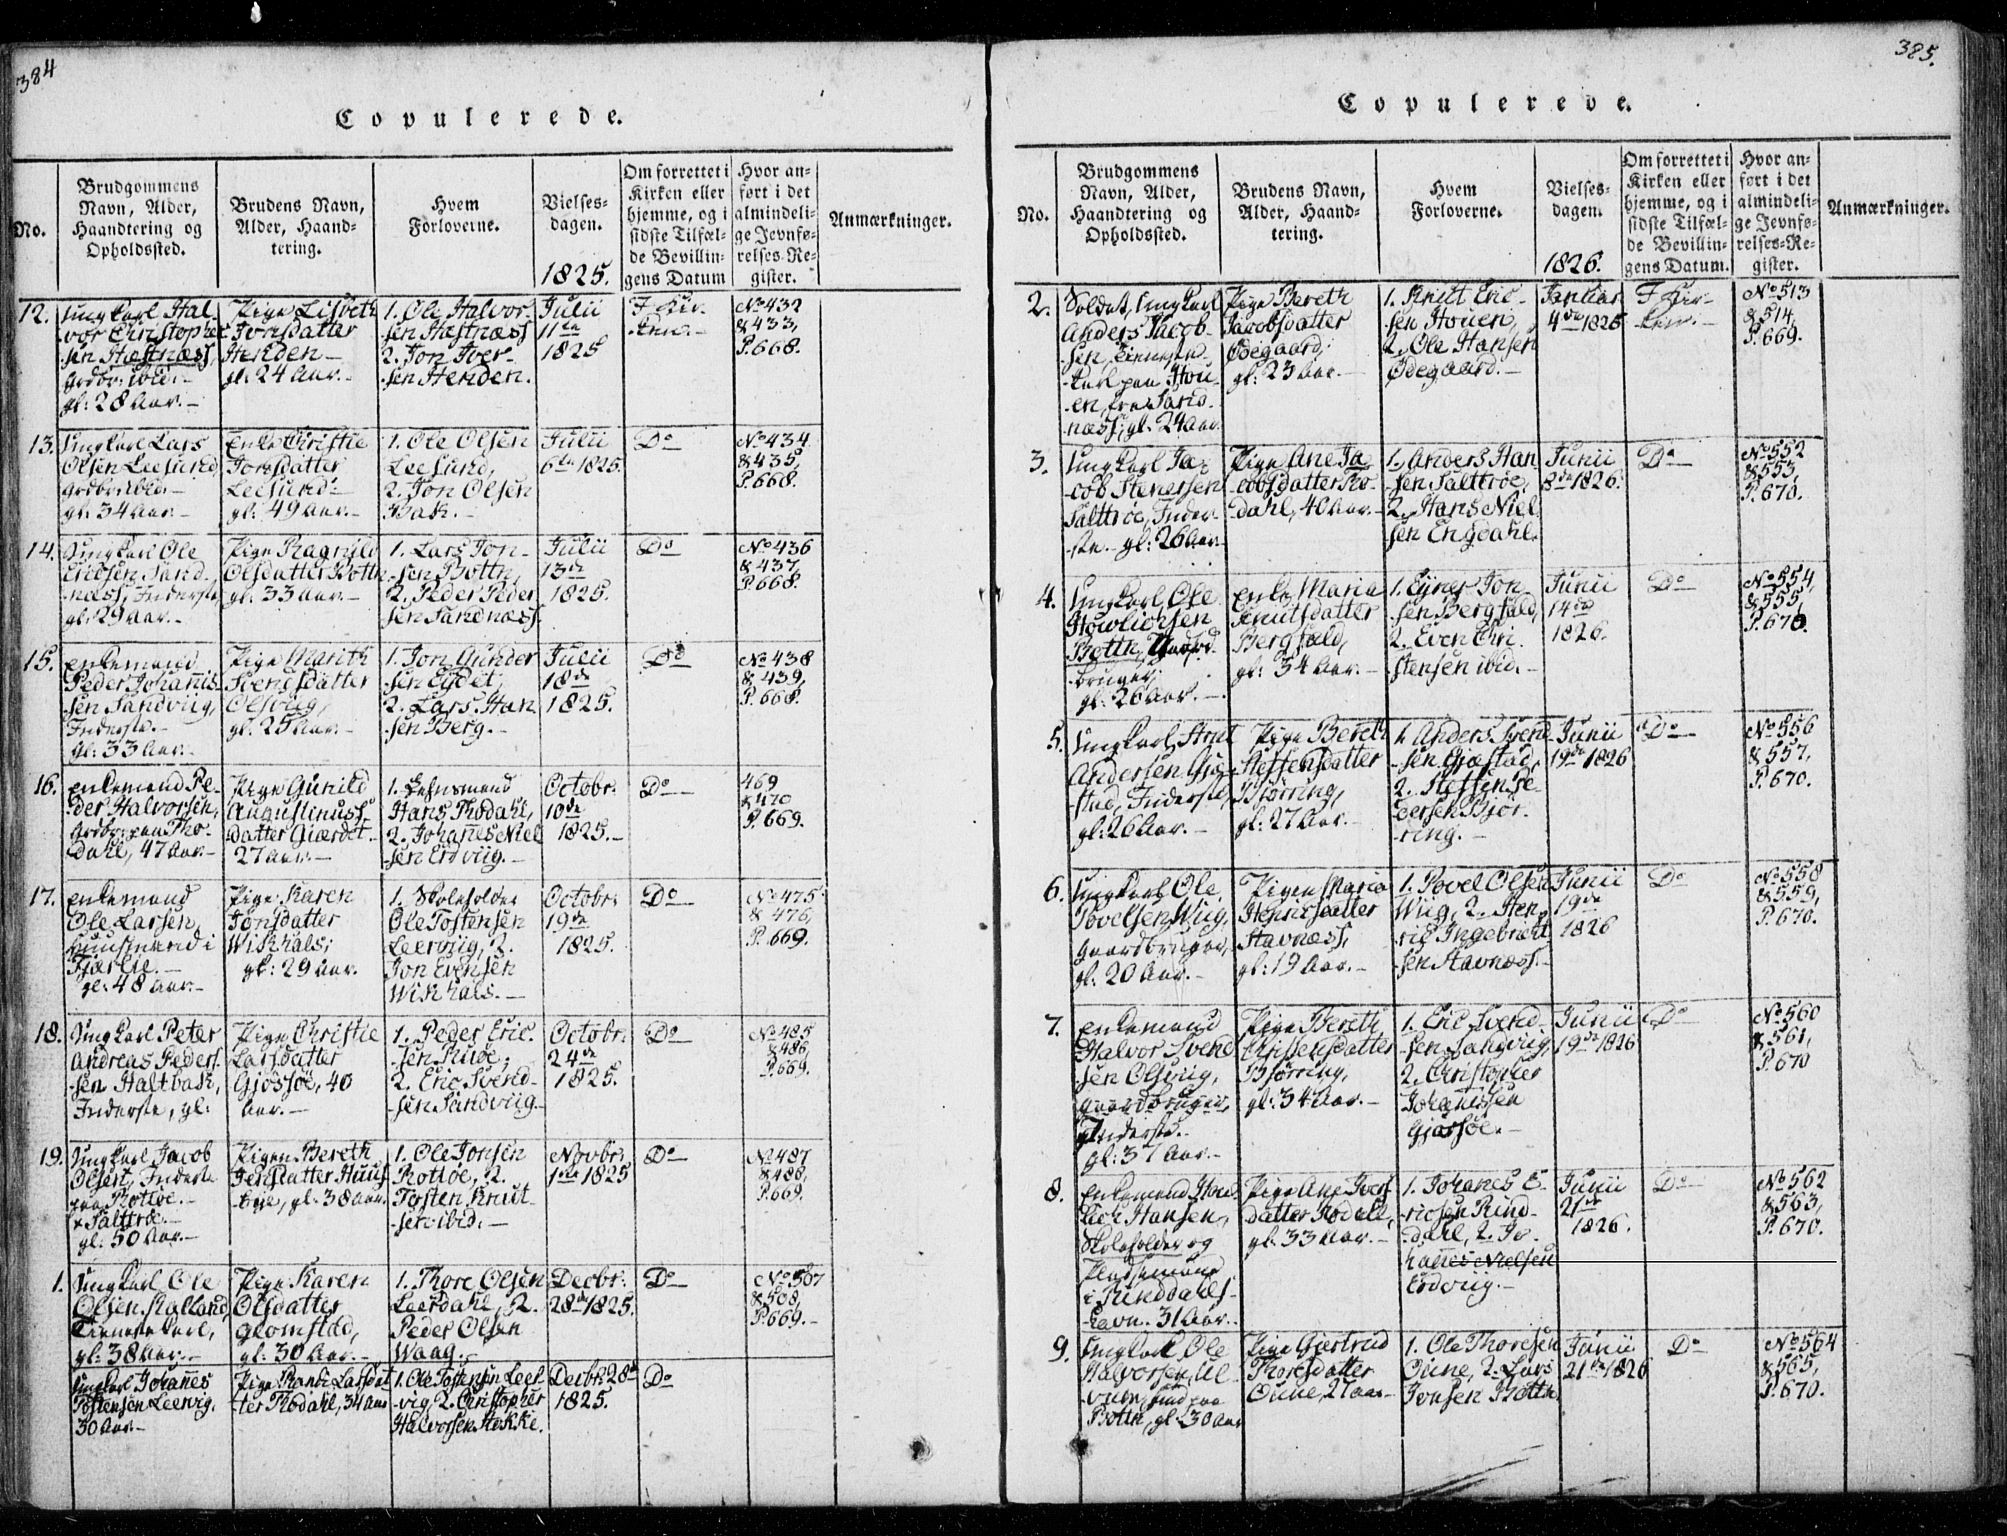 384
Copulerede.
No.
Brudgommens
Navn, Alder,
Haandtering og
Opholdssted.
Brudens Navn,
Alder, Haand-
tering.
Hvem
Forloverne.
Vielses-
dagen.
1825.
Om forrettet i
Kirken eller
hjemme, og i
sidste Tilfæl-
de Bevillin-
gens Datum
Hvor an-
ført i det
almindeli-
ge Jevnfø-
relses-Re-
gister.
Anmærkninger.
12.
Ungkarl Hal-
vor Christopher
sen Hæstnæss,
Grdbr: ibid:-
gl: 28 Aar.-
Pige Lisbeth
Jonsdatter
Henden-
gl: 24 Aar.-
1. Ole Halvor-
sen Hæstnæss
2. Jon Iver-
sen Henden.
Julii
11te
1825
I Kir-
ken.-
No 432
& 433,
P. 668.
13.
Ungkarl Lars
Olsen Leesund,
Grdbr: ibid.-
gl: 34 Aar.-
Enke Christie
Jonsdatter
Leesund:-
gl: 49 Aar.-
1. Ole Olsen
Leesund,
2. Jon Olsen
Bak.-
Julii
6te 1825.
Do
No 434
& 435,
P. 668.
14.
Ungkarl Ole
Ericsen Sand-
næss, Inderste,
gl: 29 Aar.-
Pige Ragnild
Olsdatter Bottn
gl: 33 Aar.-
1. Lars Jon-
sen Bottn,
2. Peder Peder
sen Sandnæss.
Julii
13de
1825.
Do
No 436
& 437,
P. 668.
15.
Enkemand
Peder Johannis-
sen Sandviig,
Inderste.-
gl: 33 Aar.-
Pige Marith
Svendsdatter
Olsviig,
gl: 25 Aar.-
1. Jon Gunder
sen Eydet,
2. Lars Han
sen Berg.-
Julii
18de
1825.
Do
No 438
& 439,
P. 668.
16.
Enkemand Pe-
der Halvorsen,
Grdbr: paa Rho-
dahl, 47 Aar-
Pige Gunild
Augustinuss
datter Giærdet-
27 Aar.-
1. Lehnsmand
Hans Rhodahl,
2. Johanes Niel
sen Erdviig.-
Octobr:
10de
1825.-
Do
469
& 470
P. 669.
17.
Enkemand
Ole Larsen,
Huusmand i
Fjærlie.-
gl: 48 Aar.-
Pige Karen
Jonsdatter
Wikhals,
gl: 29 Aar.
1. Skoleholder
Ole Tostensen
Leerviig, 2.
Jon Evensen
Wikhals.-
Octobr:
19de
1825.
Do
No 475
& 476,
P. 669.
18.
Ungkarl Peter
Andreas Peders-
sen Haltbak,
Inderste, gl:
Pige Christie
Larsdatter
Gjøssøe, 40
Aar.-
1. Peder Eric-
sen Ruøe,
2. Eric Svend-
sen Sandviig.-
Octobr:
24de
1825.
Do
No 485
& 486,
P. 669.
19.
Ungkarl Jacob
Olsen, Inderste
paa Rotløe.-
+ Salttrø.-
gl: 50 Aar.-
Pigen Bereth
Jensdatter Huus-
bye, gl: 38 Aar.
1. Ole Jonsen
Rotløe, 2.
Tosten Knut-
sen ibid.-
Novbr:
1te 1825
Do
No 487
& 488,
P. 669.
1.
Ungkarl Ole
Olsen Kalland,
Tienestekarl,
gl: 38 Aar.-
Pige Karen
Olsdatter
Glomstad,
gl: 30 Aar.-
1. Thore Olsen
Leerdahl, 2.
Peder Olsen
Waag.-
Decbr:
28de 1825.
Do
No 507
& 508,
P. 669.-
Ungkarl Johanes
Tostensen Leervig,
30 Aar.-
Pige Randi Larsdat
ter Rhodahl, 34 Aar
1. Ole Tostensen Leer-
vig, 2. Christopher
Halvorsen Hokke.
Decbr: 28de
1825.
Do
385.
Copulerede.
No.
Brudgommens
Navn, Alder,
Haandtering og
Opholdssted.
Brudens Navn,
Alder, Haand-
tering.
Hvem
Forloverne.
Vielses-
dagen.
1826.
Om forrettet i
Kirken eller
hjemme, og i
sidste Tilfæl-
de Bevillin-
gens Datum.
Hvor an-
ført i det
almindeli-
ge Jevnfø-
relses-Re-
gister.
Anmærkninger.
2.
Soldat, Ungkarl
Anders Jacob-
sen, Tieneste-
karl paa Hou-
en, fra Sand-
næss, gl. 24 Aar
Pige Bereth
Jacobsdatter
Ødegaard,
gl: 23 Aar.-
1. Knut Eric-
sen Houen,
2. Ole Hansen
Ødegaard.-
Januar
4de 1826
I Kir-
ken.-
No 513
& 514,
P. 669.
3.
Ungkarl Ja-
cob Stenersen
Salttrøe, Inder-
ste.- gl: 26 Aar-
Pige Ane Ja-
cobsdatter Ro-
dahl, 40 Aar.-
1. Anders Han
sen Salttrøe,
2. Hans Niel
sen Engdahl.
Junii
8de 1826.
Do
No 552
& 553,
P. 670.
4.
Ungkarl Ole
Howliorsen
Bottn, Gaard-
bruger,
gl: 26 Aar.-
Enke Maria
Knutsdatter
Bergfald,
gl: 34 Aar.-
1. Ejner Jon
sen Bergfald,
2. Even Chri-
stensen ibid.-
Junii
14de
1826.
Do
No 554,
& 555,
P. 670.
5.
Ungkarl Arnt
Andersen Gjø-
stad, Inderste,
gl: 26 Aar.-
Pige Bereth
Steffensdatter
Bjørring,
gl: 27 Aar.-
1. Anders Svend
sen Gjøstad,
2. Steffen Pe-
dersen Bjør-
ring.-
Junii
19de 1826
Do
No 556
& 557,
P. 670.
6.
Ungkarl Ole
Povelsen Wiig,
Gaardbruger,
gl: 20 Aar.-
Pigen Maria
Henricsdatter
Stavnæss,
gl: 19 Aar.-
1. Povel Olsen
Wiig, 2. Hen-
ric Ingebrekt
sen Stavnæss.-
Junii
19de
1826
Do
No 558
& 559,
P. 670.
7.
Enkemand
Halvor Svend
sen Olsviig,
Gaardbruger,
Inderste.
gl: 37 Aar.-
Pige Bereth
Christensdatter
Bjørring,
gl: 34 Aar.-
1. Eric Svend-
sen Sandviig,
2. Christopher
Johannssen
Gjøssøe.-
Junii
19de 1826
Do
No 560
& 561,
P. 670
8.
Enkemand Hou-
lich Hansen,
Skoleholder og
Pladsemand
i Rinddahls-
havn. 31 Aar.-
Pige Ane Ivers
datter Rodall,
gl: 33 Aar.-
1. Johanes E-
ricsen Rind-
dahl, 2. Jo-
hannes Nielsen
Erdviig.-
Junii
21de
1826.
Do
No 562
& 563,
P. 670.
9.
Ungkarl Ole
Halvorsen Ul-
vuen, Hmd paa
Bottn, gl: 30 Aar
Pige Giertrud
Thoresdatter
Oune, 27 Aar-
1. Ole Thoresen
Oune, 2. Lars
Jonsen Bottn.
Junii
21de 1826
Do
No 564
& 565,
P. 670.